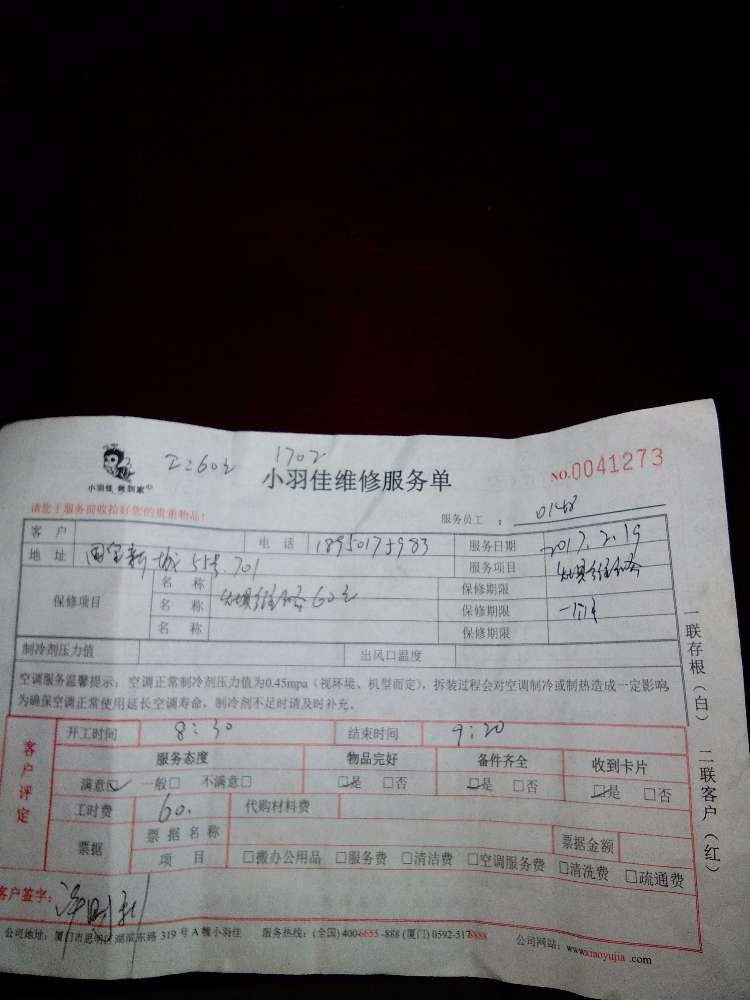 工:60元 1702
小羽佳 尊到家
小羽佳维修服务单 NO.0041273
请您于服务前收拾好您的贵重物品! 服务员工 : 0148
客 户 电 话 18950175983 服务日期 2017.2.19
地 址 国金新城55号701 服务项目 灶具维修
保修项目 名 称 保修期限
名 称 灶具维修60元 保修期限 一个月
名 称 保修期限
制冷剂压力值 出风口温度
空调服务温馨提示:空调正常制冷剂压力值为0.45mpa(视环境、机型而定),拆装过程会对空调制冷或制热造成一定影响,
为确保空调正常使用延长空调寿命,制冷剂不足时请及时补充。
客户评定 开工时间 8:30 结束时间 9:20
服务态度 物品完好 备件齐全 收到卡片
满意☑ 一般□ 不满意□ ☑是 □否 ☑是 □否 ☑是 □否
工时费 60. 代购材料费
票据 票 据 名 称 票据金额
项 目 □搬办公用品 □服务费 □清洁费 □空调服务费 □清洗费 □疏通费
客户签字:
公司地址:厦门市思明区湖滨东路 319 号 A 幢小羽佳 服务热线:(全国) 400-6655-888 (厦门) 0592-5178888 公司网站:www.xiaoyujia.com
一联存根(白) 二联客户(红)